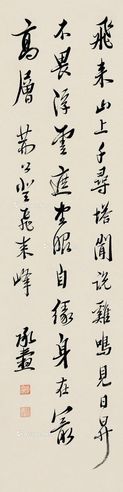 飛来山上千尋塔聞説雞鳴見日昇
不畏浮雲遮望眼自緣身在最
高層 荊公登飛来峰 承燾